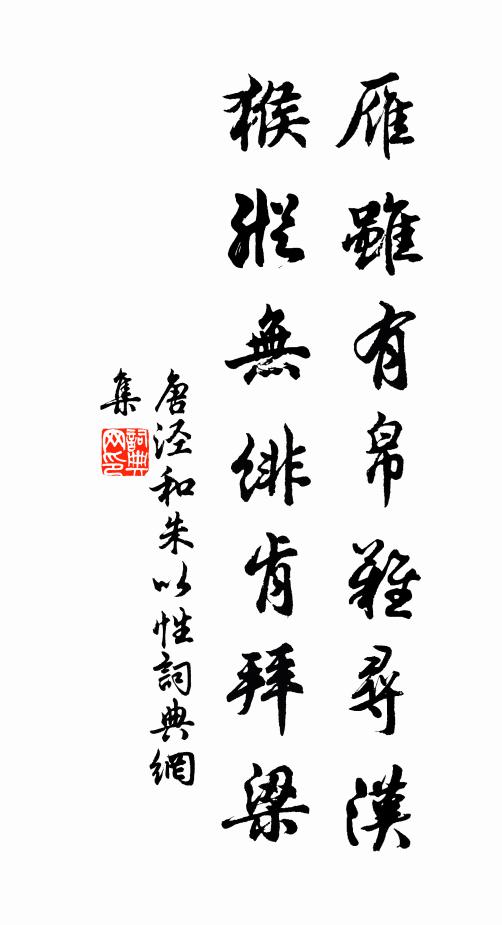 雁雖有帛難尋漢
猴縱無緋肯拜梁
唐泾和朱以性詞典網
集
詞典網印